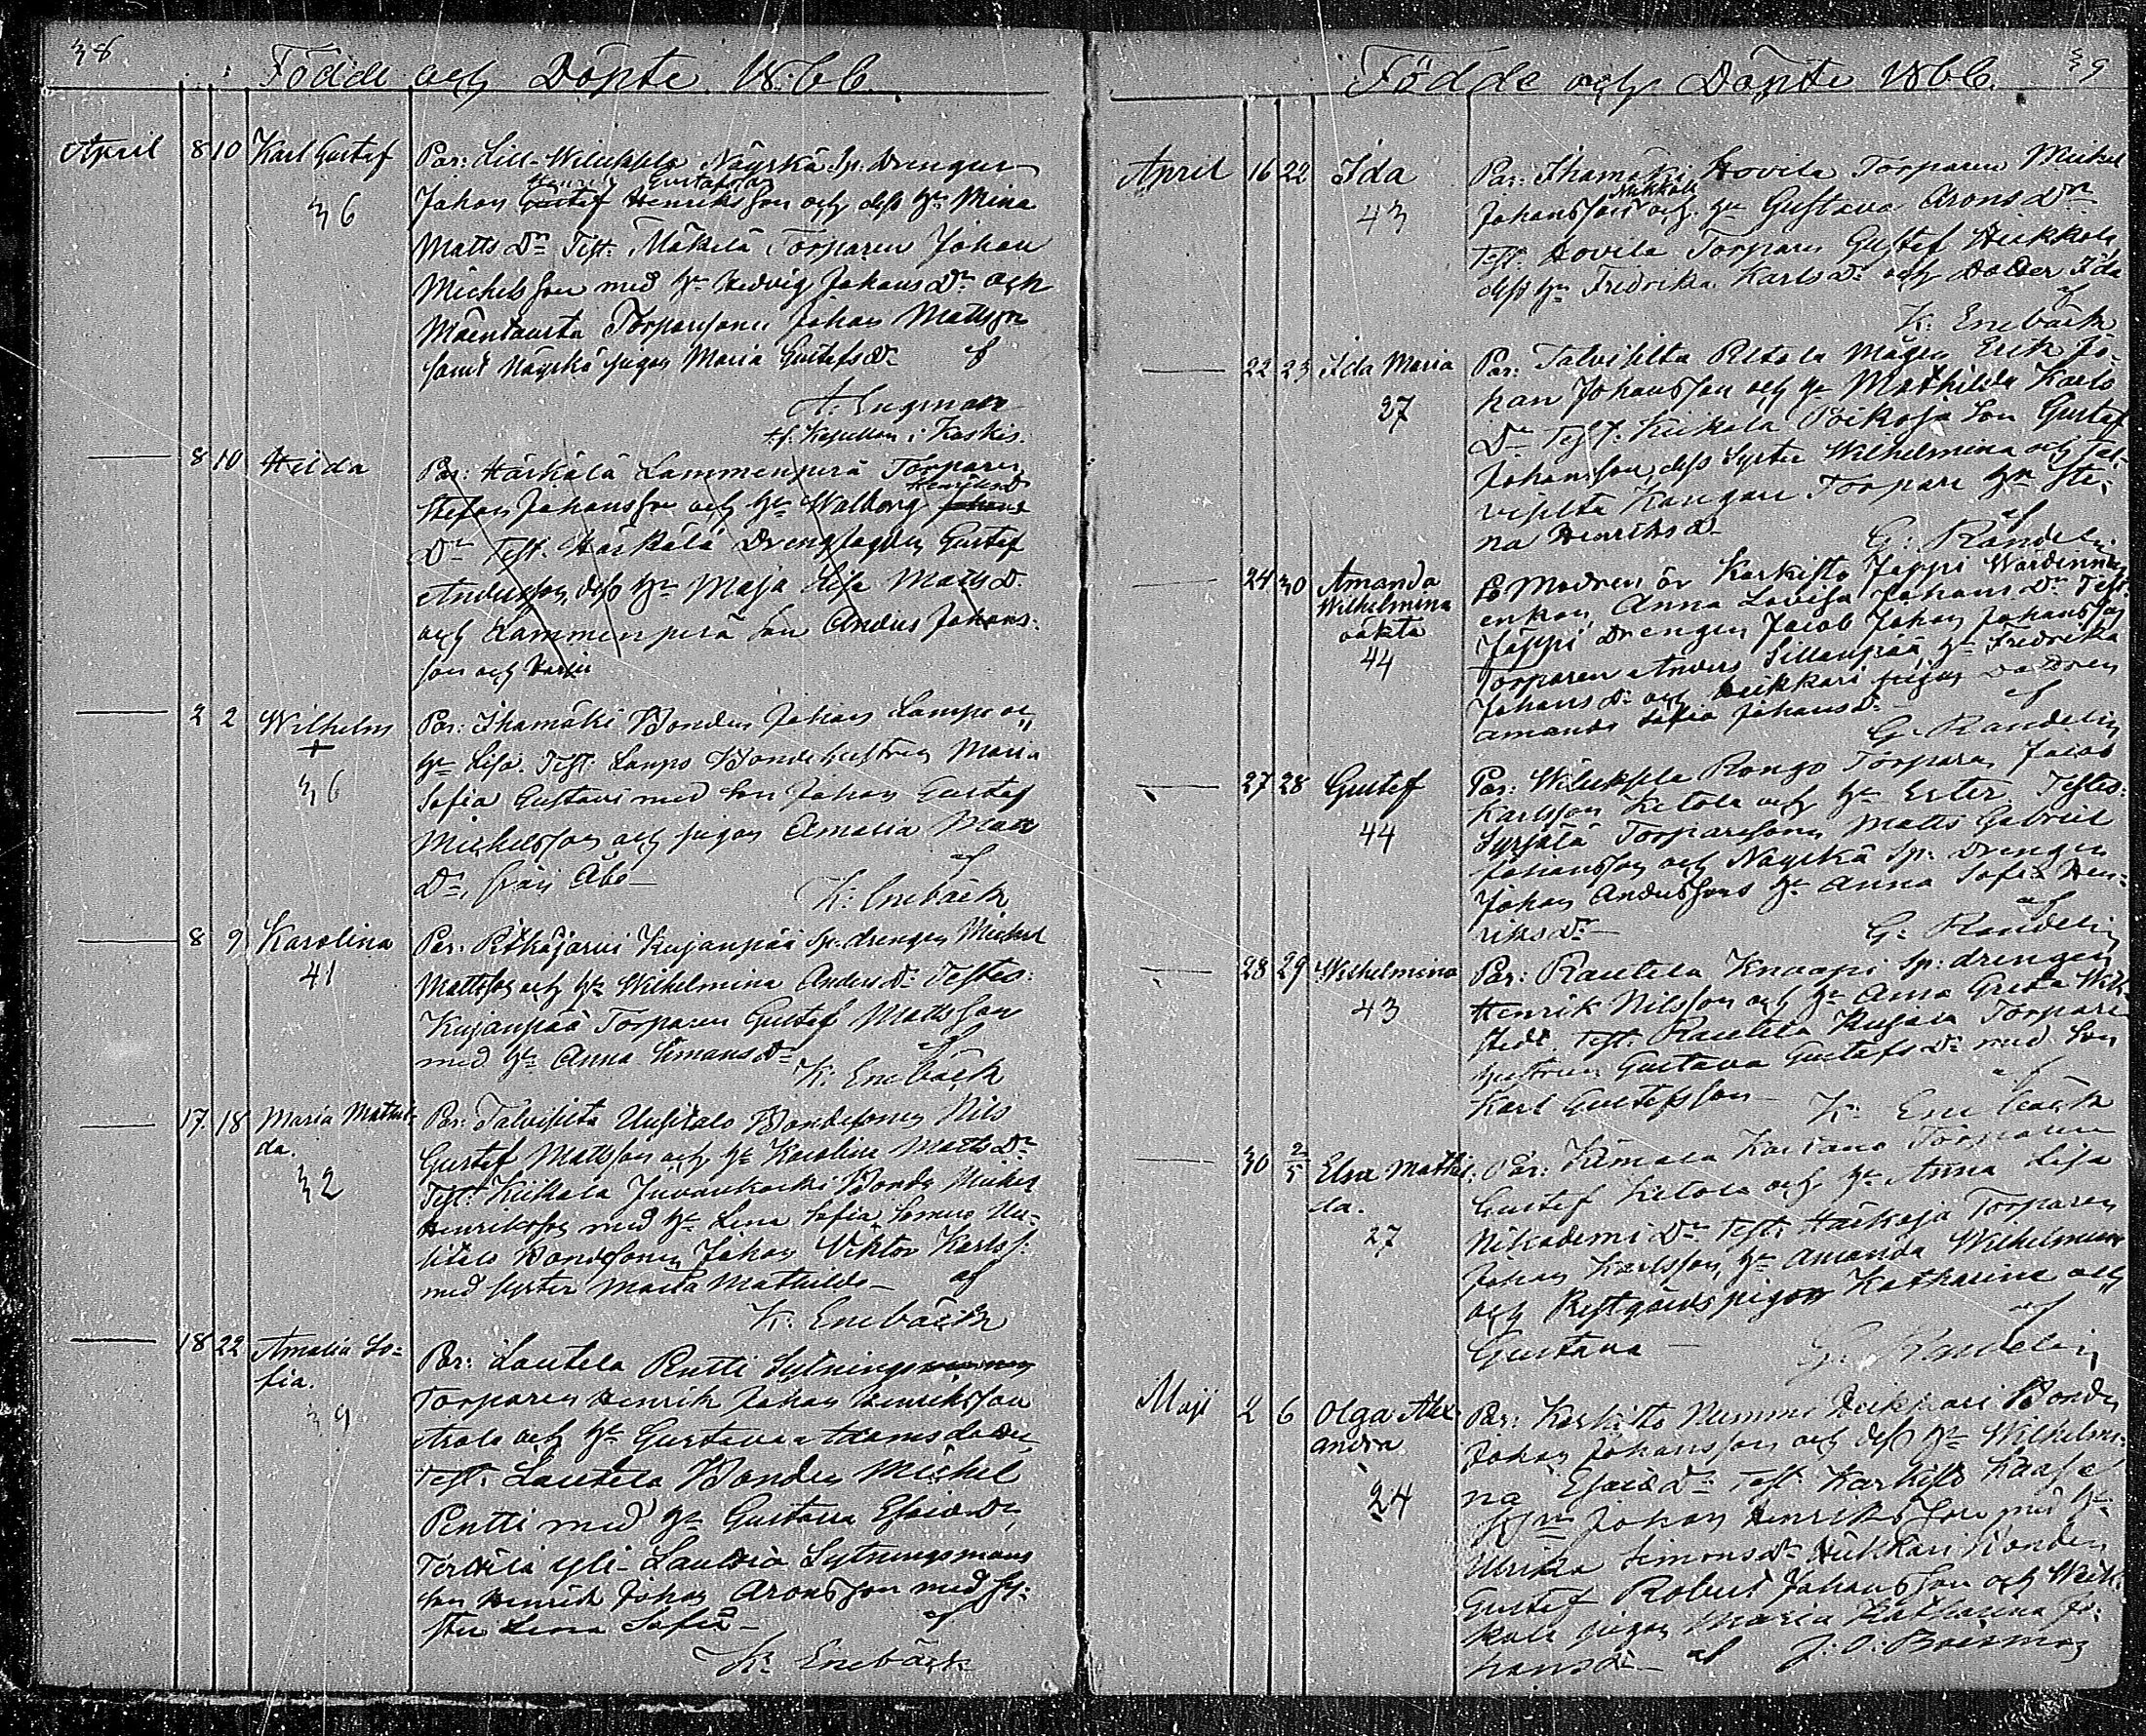 38
Födde och Döpte 1866.
April 8 10 Karl Gustaf
36
Par: Lill-Wiluksela Näyrkä Sp. drengen
Henrik Gustafsson
Johan Gustaf Henriksson och dess hu Mina
Matts Dr Test: Mäkelä Torparen Johan
Michelsson med hu Hedvig Johans Dr och
Mäentausta Torparsonen Johan Mattsson
samt Näyrkä pigan Maria Gustafs Dr af
A. Engman
t.f. Kapellan i Koskis.
8 10 Hilda
Par: Härkälä Lammenperä Torparen
Henriks D
Stefan Johansson och hu Walborg Johans
Dr Test. Härkälä Drengkarlen Gustaf
Andersson, dess hu Maja Lisa Matts D.
och Lammenperä son Anders Johans-
son och
2 2 Wilhelm
+
36
Par: Ihamäki Bonden Johan Lampo och
hu Lisa. Test: Lampo Bondehustrun Maria
Sofia Gustavi med son Johan Gustaf
Michelsson och pigan Amalia Matts
Dr, från Åbo — af
K. Enebäck
8 9 Karolina
41
Par: Pitkäjärvi Kujanpää Sp. drengen Michel
Mattsson och hu Wilhelmina Anders Dr Testes:
Kujanpää Torparen Gustaf Mattsson
med hu Anna Simans Dr af
K. Enebäck
17 18 Maria Mathil-
da.
32
Par: Talvisilta Uusitalo Bondesonen Nils
Gustaf Mattsson och hu Karolina Matts Dr
Test: Kiikala Juvankoski Bonden Michel
Henriksson med hu Lena Sofia Somero Uu-
sitalo Bondsonen Johan Viktor Karlss.
med syster Maria Mathilda — af
K. Enebäck
18 22 Amalia So-
fia.
39
Par: Lautela Rutti Sytnings
Torparen Henrik Johan Henriksson
och hu Gustava Adams dotter,
Test. Lautela Bonden Michel
Pentti med hu Gustava Esaias Dr,
Terttilä Yli-Lauttia Sytningsmans
son Henrik Johan Aronsson med sy-
ster Lena Sofia — af
K. Enebäck
39
Födde och Döpte 1866.
April 16 22 Ida
43
Par: Ihamäki Hovila Torparen Michel
Nikkola
Johansson och hu Gustava Arons Dr
Test. Hovila Torparen Gustaf Heikkola,
dess hu Fredrika Karls Dr och dotter Ida
af
K. Enebäck
22 23 Ida Maria
27
Par: Talvisilta Pietola Mågen Erik Jo-
han Johansson och hu Mathilda Karls
Dr Test. Kiikala Poikoja Son Gustaf
Johansson, dess Syster Wilhelmina och Tal-
visilta Kangan Torpare hu Ste-
na Henriks D. af
G. Randelin
24 30 Amanda
Wilhelmina
oäkta
44
Modren är Karkisto Jäppi Wärdinne
enkan, Anna Lovisa Johans Dr Test.
Jäppi drengen Jacob Johan Johansson
Torparen Anders Sillanpää, hu Fredrika
Johans Dr och Heikkari pigan Dottren
Amanda Sofia Johans D. af
G. Randelin
27 28 Gustaf
44
Par: Wiluksela Rongo Torparen Jacob
Karlsson Ketola och hu Ester Testes:
Syrjälä Torparesonen Matts Gabriel
Johansson och Näyrkä Sp: drengen
Johan Anderssons hu Anna Sofia Hen-
riks Dr — af
G. Randelin
28 29 Wilhelmina
43
Par: Rautela Knaapi Sp: drengen
Henrik Nilsson och hu Anna Greta Wik-
stedt. Test: Rautela Kujala Torpare
hustrun Gustava Gustafs Dr med Son
Karl Gustafsson — af
K. Enebäck
30 2/5 Elsa Mathil-
da.
27
Par: Kimala Torparen
Gustaf Ketola och hu Anna Lisa
Nikodemi Dr Test. Härkäjä Torparen
Johan Karlsson, hu Amanda Wilhelmina
och Rustgårds pigan Katharina och
Gustava — af
G. Randelin
Maji 2 6 Olga Alex-
andra
24
Par: Karkisto Nummi Heikkari Bonden
Johan Johansson och dess hu Wilhelmi-
na Esaias Dr Test. Karkisto
Johan Henriksson med hu
Ulrika Simons Dr Heikkari Bonden
Gustaf Robert Johansson och Weik-
kola pigan Maria Katharina Jo-
hans Dr — af J. O. Boisman